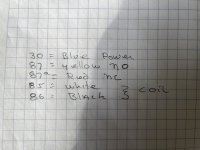 30 = Blue Power
87 = yellow NO
87a = Red NC
85 = white
86 = Black } coil